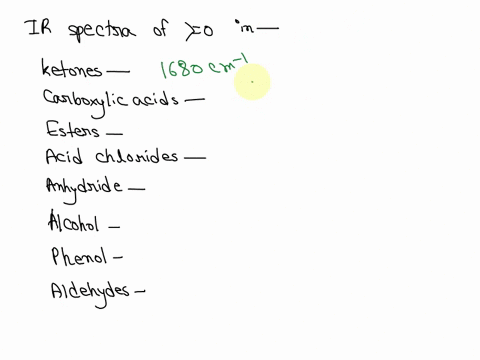 IR spectra of >=O in —
ketones — 1680 cm⁻¹
Carboxylic acids —
Esters —
Acid chlorides —
Anhydride —
Alcohol -
Phenol -
Aldehydes -